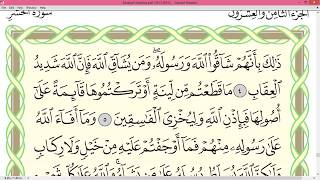 الجزء الثامن والعشرون سورة الحشر
ذَٰلِكَ بِأَنَّهُمْ شَاقُّوا۟ ٱللَّهَ وَرَسُولَهُۥ ۖ وَمَن يُشَآقِّ ٱللَّهَ فَإِنَّ ٱللَّهَ شَدِيدُ
ٱلْعِقَابِ ٤ مَا قَطَعْتُم مِّن لِّينَةٍ أَوْ تَرَكْتُمُوهَا قَآئِمَةً عَلَىٰٓ
أُصُولِهَا فَبِإِذْنِ ٱللَّهِ وَلِيُخْزِىَ ٱلْفَٰسِقِينَ ٥ وَمَآ أَفَآءَ ٱللَّهُ
عَلَىٰ رَسُولِهِۦ مِنْهُمْ فَمَآ أَوْجَفْتُمْ عَلَيْهِ مِنْ خَيْلٍ وَلَا رِكَابٍ